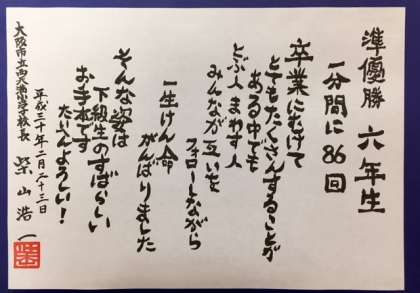 準優勝 六年生
一分間に86回
卒業にむけて
とてもたくさんすることが
ある中でも
とぶ人 まわす人
みんなが互いを
フォローしながら
一生けん命
がんばりました
そんな姿は
下級生のすばらしい
お手本です
たいへんよろしい!
平成三十年二月二十三日
大阪市立西天満小学校長 柴山浩一